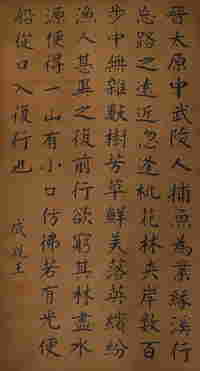 晉太原中武陵人捕魚為業緣溪行
忘路之遠近忽逢桃花林夾岸數百
步中無雜獸樹芳草鮮美落英繽紛
漁人甚異之復前行欲窮其林盡水
源便得一山有小口仿佛若有光便
船從口入復行也
成親王